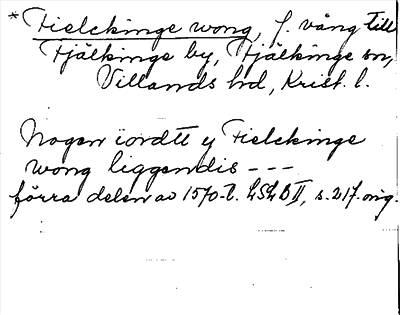 * Fielckinge wong, f. vång till
Fjälkinge by, Fjälkinge sn,
Villands hd, Krist. l.
Nogen iordtt y Fielckinge
wong liggendis ---
förra delen av 1570-t. LSLB II, s. 217. orig.